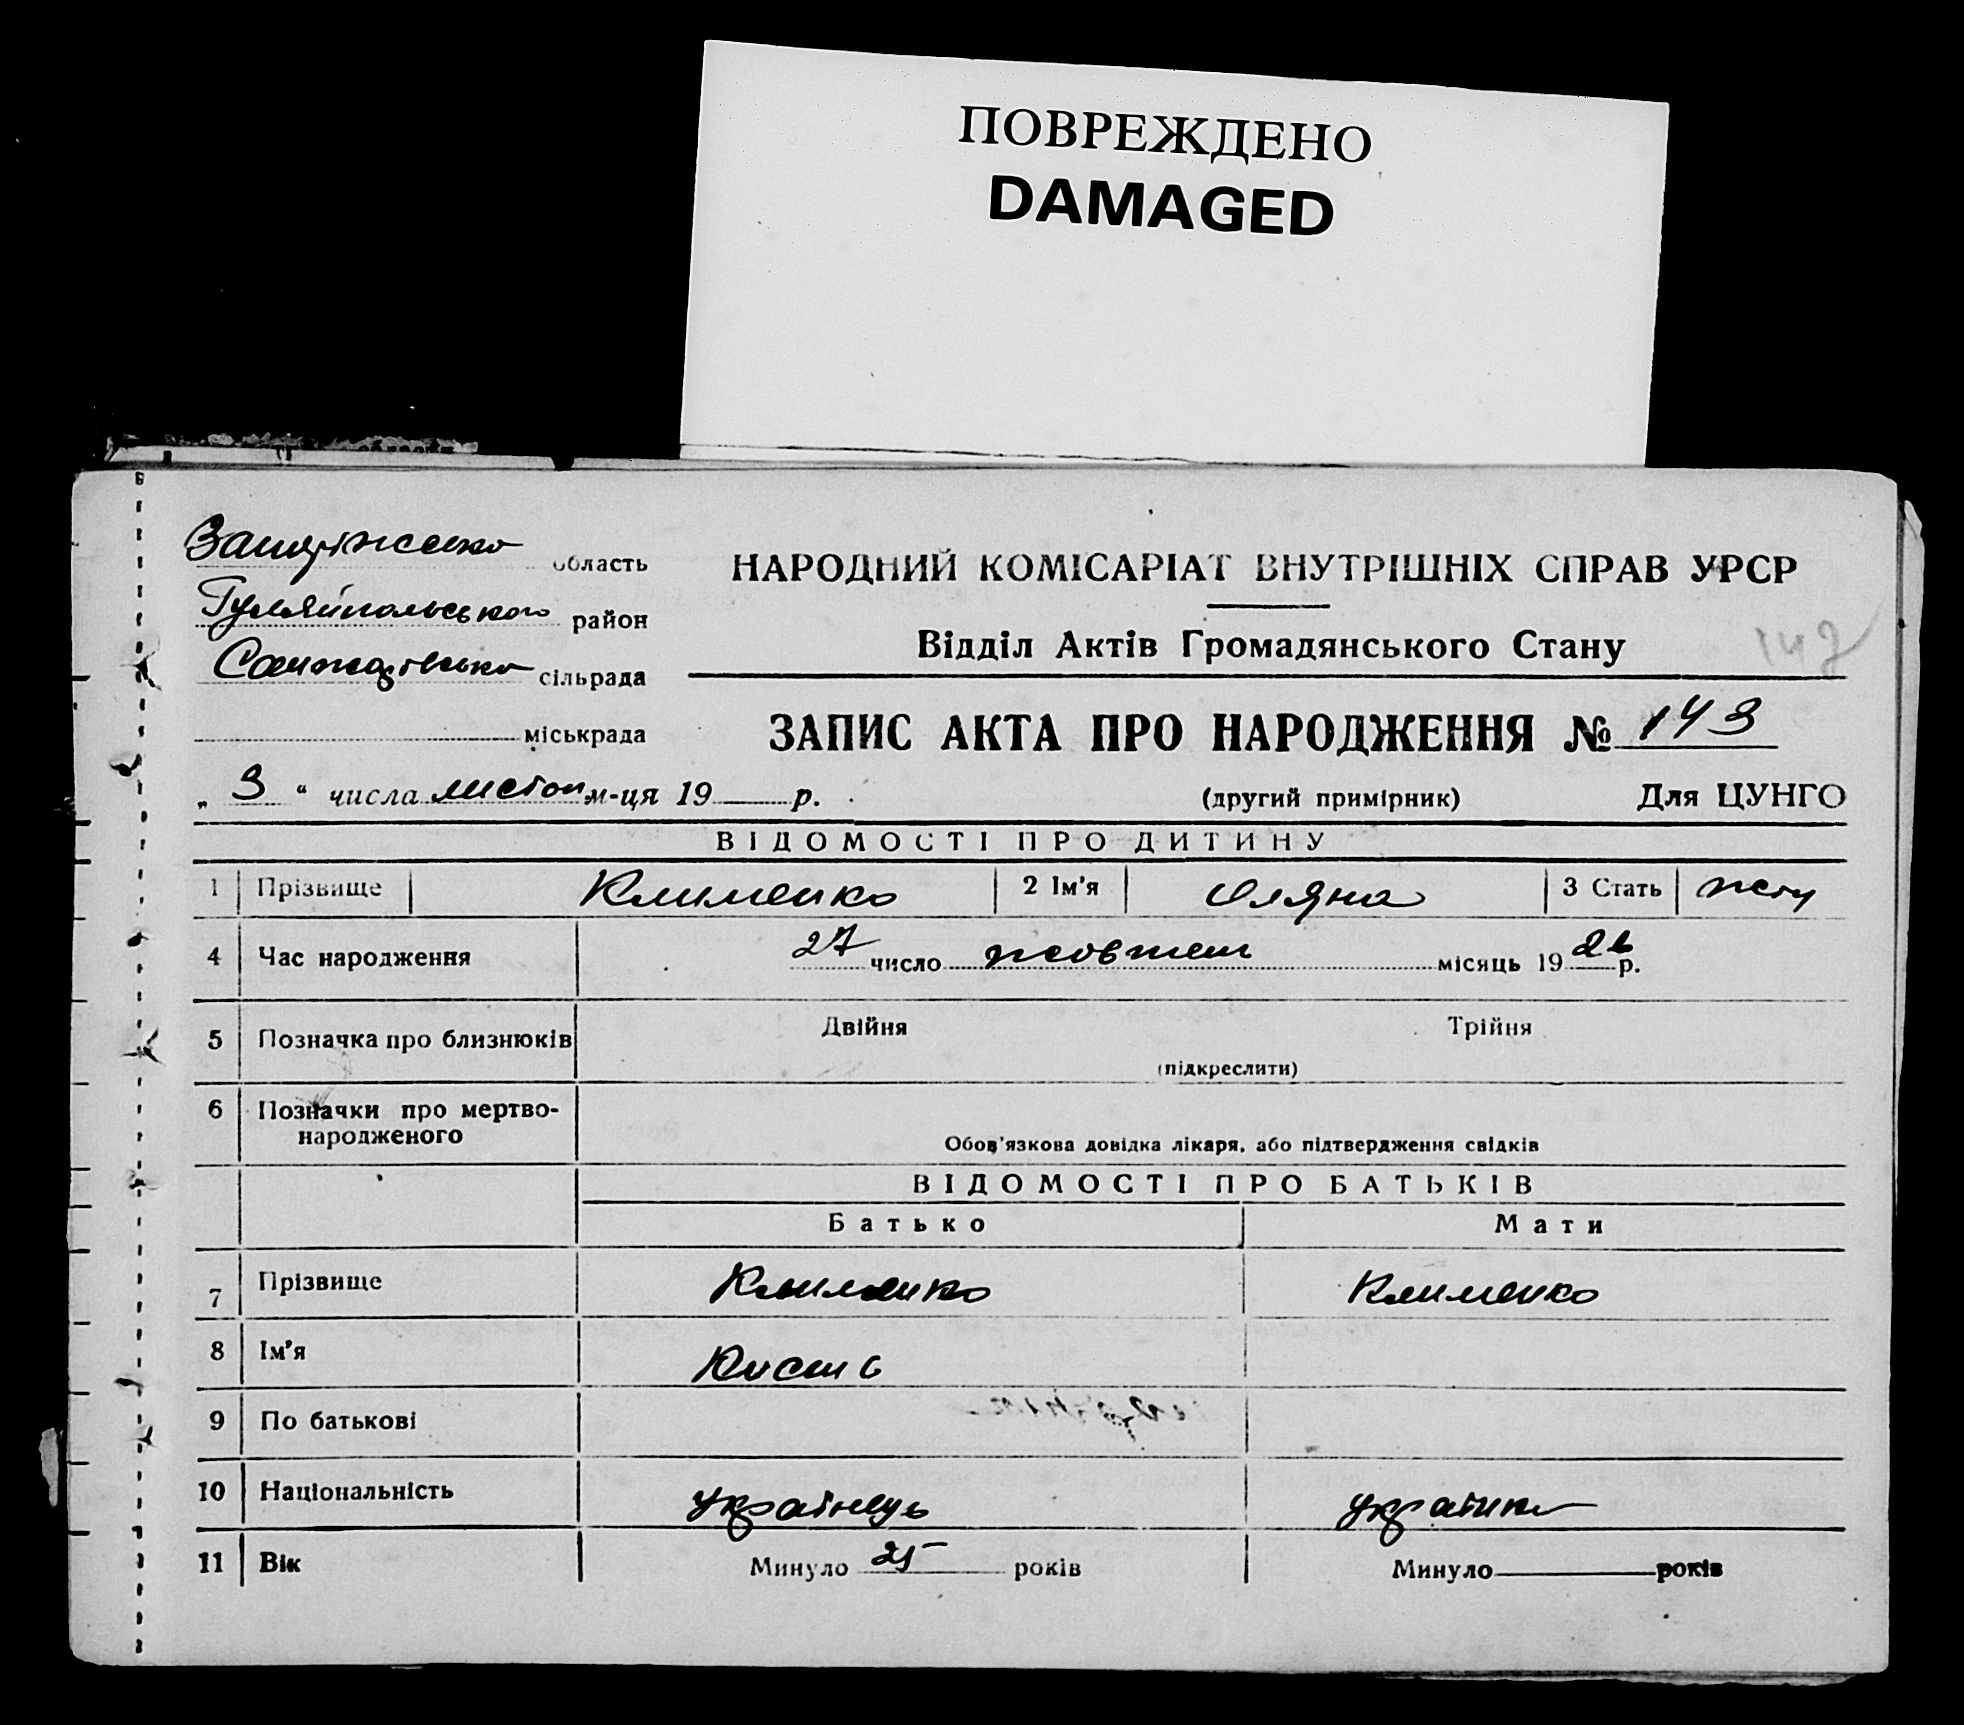 ПОВРЕЖДЕНО
DAMAGED
область
НАРОДНИЙ КОМІСАРІАТ ВНУТРІШНІХ СПРАВ УРСР
Гуляйпольського район
Відділ Актів Громадянського Стану
сільрада
міськрада
ЗАПИС АКТА ПРО НАРОДЖЕННЯ № 143
„ 3 “ числа листоп м-ця 19 р.
(другий примірник) Для ЦУНГО
ВІДОМОСТІ ПРО ДИТИНУ
1 Прізвище Клименко 2 Ім'я Оляна 3 Стать
4 Час народження 27 число жовтень місяць 19 26 р.
5 Позначка про близнюків Двійня Трійня
(підкреслити)
6 Позначки про мертво-
народженого
Обов'язкова довідка лікаря, або підтвердження свідків
ВІДОМОСТІ ПРО БАТЬКІВ
Батько Мати
7 Прізвище Клименко Клименко
8 Ім'я
9 По батькові
10 Національність українець українка
11 Вік Минуло 25 років Минуло років